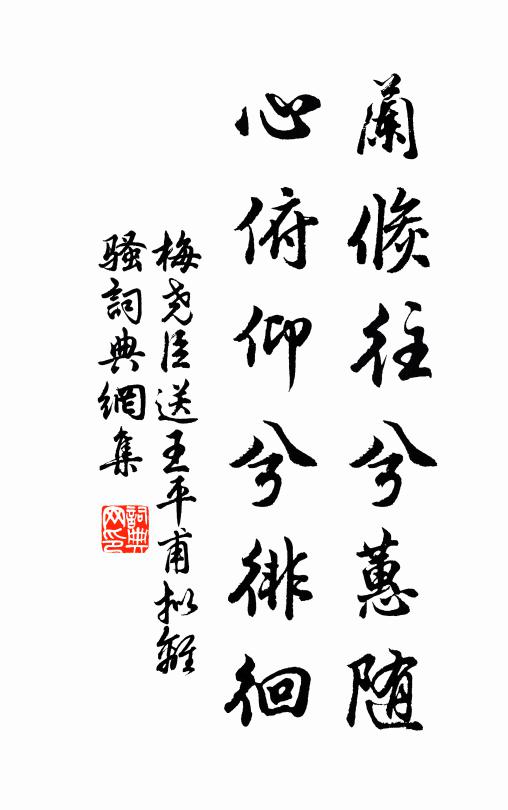 蘭倏往兮蕙随
心俯仰兮徘徊
梅尧臣送王平甫拟離
騷詞典網集
詞典网印